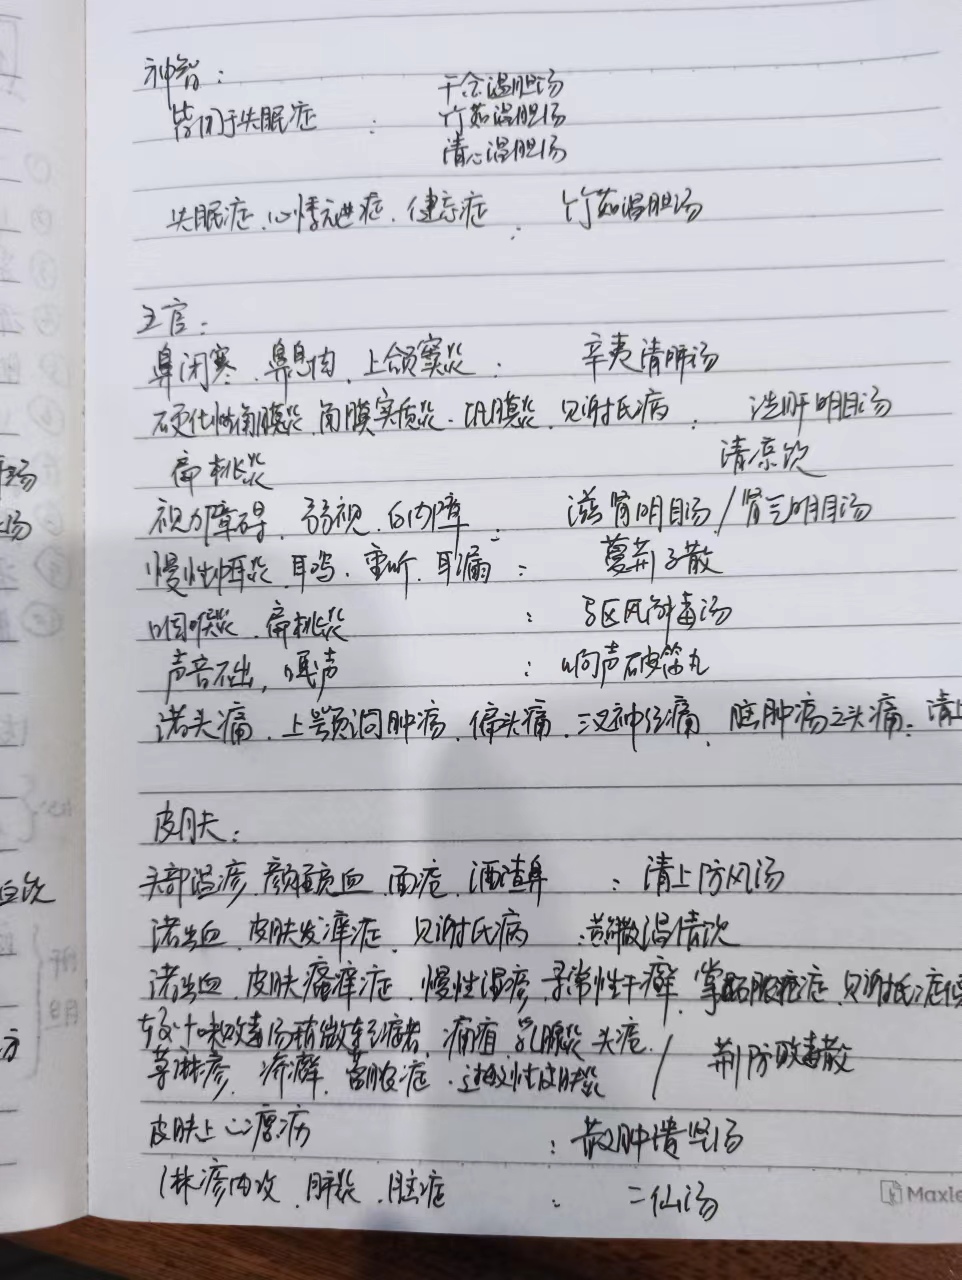 神智：
千金温胆汤
皆用于失眠症 ： 竹茹温胆汤
清心温胆汤
失眠症、心悸亢进症、健忘症 ： 竹茹温胆汤
五官：
鼻闭塞、鼻息肉、上颌窦炎 ： 辛夷清肺汤
硬化性角膜炎、角膜实质炎、巩膜炎、贝谢氏病 ： 洗肝明目汤
扁桃炎 清凉饮
视力障碍、弱视、白内障 ： 滋肾明目汤/肾气明目汤
慢性中耳炎、耳鸣、重听、耳漏 ： 蔓荆子散
咽喉炎、扁桃炎 ： 驱风解毒汤
声音不出，嗄声 ： 响声破笛丸
诸头痛、上颚洞肿疡、偏头痛、三叉神经痛、脑肿疡之头痛：清上
皮肤：
头部湿疹、颜面充血、面疱、酒渣鼻 ： 清上防风汤
诸出血、皮肤发痒症、贝谢氏病 ： 清饮
诸出血、皮肤瘙痒症、慢性湿疹、寻常性干癣、掌蹠脓疱症、贝谢氏症候
较十味败毒汤稍微轻症者、痈疽、乳腺炎、头疮
荨麻疹、疥癣、蓄脓症、过敏性皮肤炎 / 荆防败毒散
皮肤上 ： 散肿溃坚汤
麻疹内攻、肺炎、脑症 ： 二仙汤
Maxle